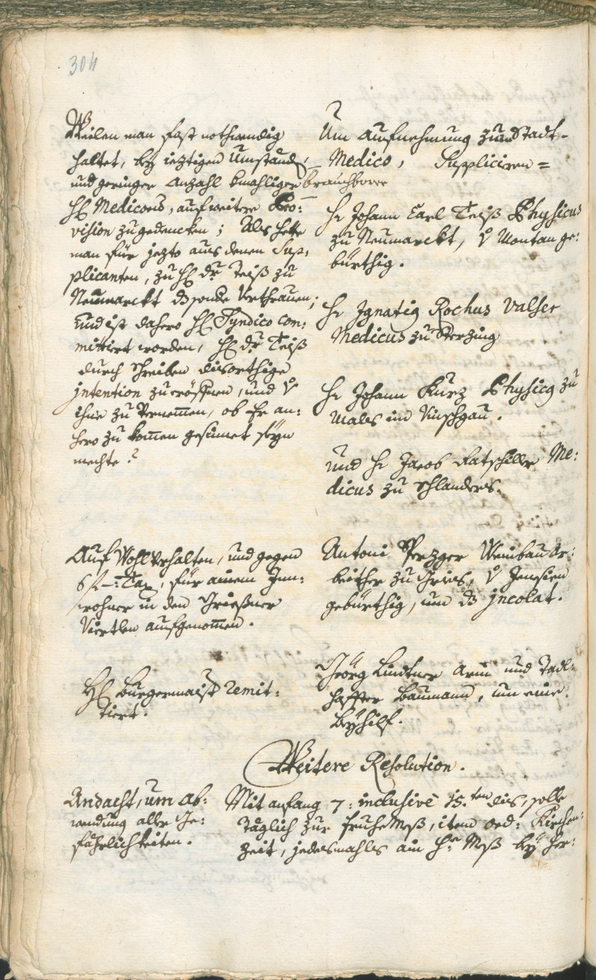 304
Weilen man fast nothwendig
haltet, bey iezigen Umbständ,
und geringer Anzahl hmahliger brauchbare
H. Medicorum, auf weitere Pro:
vision zu gedencken; Als hette
man für iezto aus denen Sup:
plicanten, zu H. dr Teiß zu
Neumarckt das Vertrauen;
und ist dahero H. Syndico com:
mittirt worden, H. dr Teiß
durch Schreiben diesorthige
intention zu eröffnen, und v
ihme zu vernemmen, ob Er an:
hero zu kommen gesinnet seyn
mechte?
Um Aufnehmung zum Stadt-
Medico, Suppliciren =
Hr Johann Carl Teiß Physicus
zu Neumarckt, v Montan ge:
bürthig.
Hr Ignatig Rochus Valser
Medicus zu Sterzing
Hr Johann Kurz Physicg zu
Mals im Vinschgau.
und Hr Jacob Ratschiller Me:
dicus zu Schlanders.
Auf Wohlverhalten, und gegen
6 f Tax, für einen Inn:
wohner in den Grießner
Viertlen aufgenommen.
Antoni Prezger Weinbau Ar:
beither zu Gries, v Jenesien
gebürthig, um ds Jncolat.
H. Burgermaist remit:
tiert.
Jörg Lindner Arm und Tadl:
haffter Baumann, um eine
Beyhilf.
Weitere Resolution.
Andacht, um Ab:
wendung aller Ge:
fährlichkeiten.
Mit anfang 7: inclusivè 15.ten dis, solle
täglich zur fruhe Mß, item ord: Kirchen:
zeit, jedesmahls ain H. Mß bey Her: